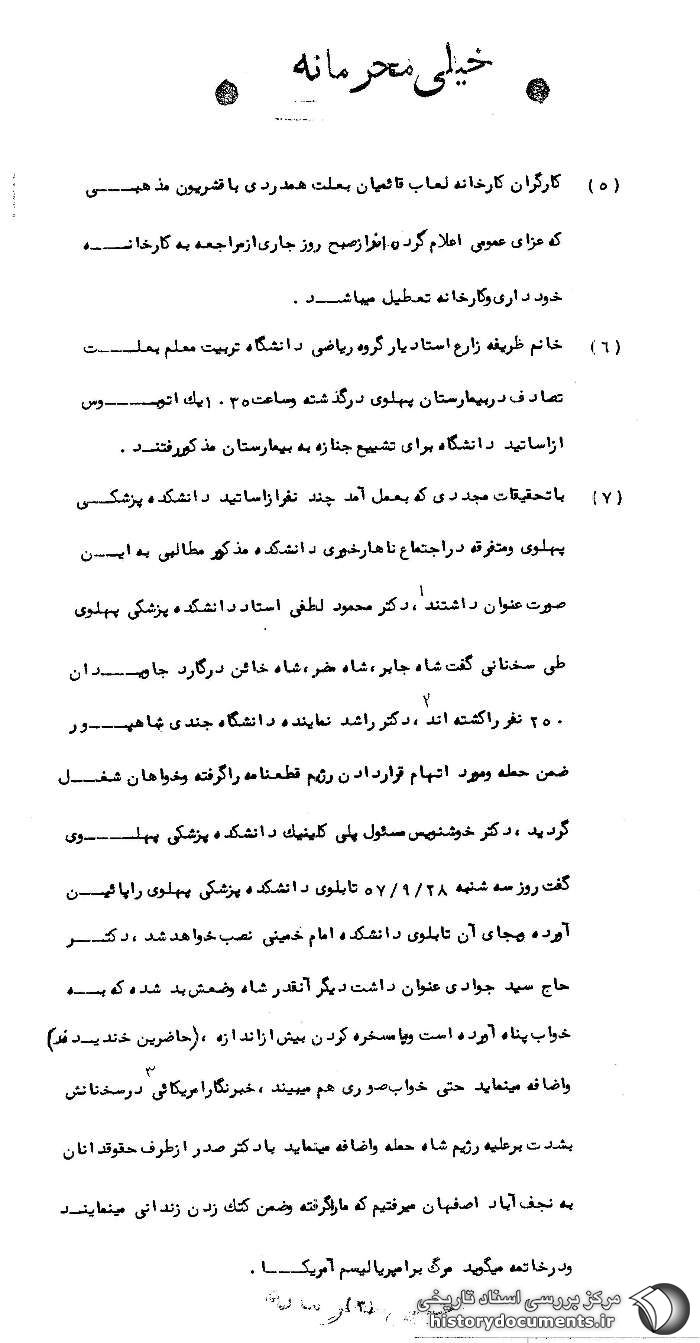 خیلی محرمانه
(۵) کارگران کارخانه لعاب قائمیان بعلت همدردی با قشریون مذهبی
که عزای عمومی اعلام کرده اند از صبح روز جاری از مراجعه به کارخانه
خودداری و کارخانه تعطیل میباشد .
(۶) خانم ظریفه زارع استادیار گروه ریاضی دانشگاه تربیت معلم بعلت
تصادف در بیمارستان پهلوی درگذشته و ساعت ۱۰۳۵ یك اتوبوس
از اساتید دانشگاه برای تشییع جنازه به بیمارستان مذکور رفتند .
(۷) با تحقیقات مجددی که بعمل آمد چند نفر از اساتید دانشکده پزشکی
پهلوی و متفرقه در اجتماع ناهارخوری دانشکده مذکور مطالبی به این
صورت عنوان داشتند ۱، دکتر محمود لطفی استاد دانشکده پزشکی پهلوی
طی سخنانی گفت شاه جابر ، شاه مضر ، شاه خائن در گارد جاویدان
۲۵۰ نفر را کشته اند ۲، دکتر راشد نماینده دانشگاه جندی شاهپور
ضمن حمله و مورد اتهام قرار دادن رژیم قطعنامه را گرفته و خواهان شغل
گردید ، دکتر خوشنویس مسئول پلی کلینیك دانشکده پزشکی پهلوی
گفت روز سه شنبه ۵۷/۹/۲۸ تابلوی دانشکده پزشکی پهلوی را پائین
آورده و بجای آن تابلوی دانشکده امام خمینی نصب خواهد شد ، دکتر
حاج سید جوادی عنوان داشت دیگر آنقدر شاه وضعش بد شده که به
خواب پناه آورده است و با مسخره کردن بیش از اندازه ، (حاضرین خندیدند)
و اضافه مینماید حتی خواب صوری هم میبیند ۳، خبرنگار امریکائی در سخنانش
بشدت بر علیه رژیم شاه حمله و اضافه مینماید با دکتر صدر از طرف حقوقدانان
به نجف آباد اصفهان میرفتیم که ما را گرفته و ضمن کتك زدن زندانی مینمایند
و در خاتمه میگوید مرگ بر امپریالیسم آمریکا .
(۳)
مرکز بررسی اسناد تاریخی
historydocuments.ir